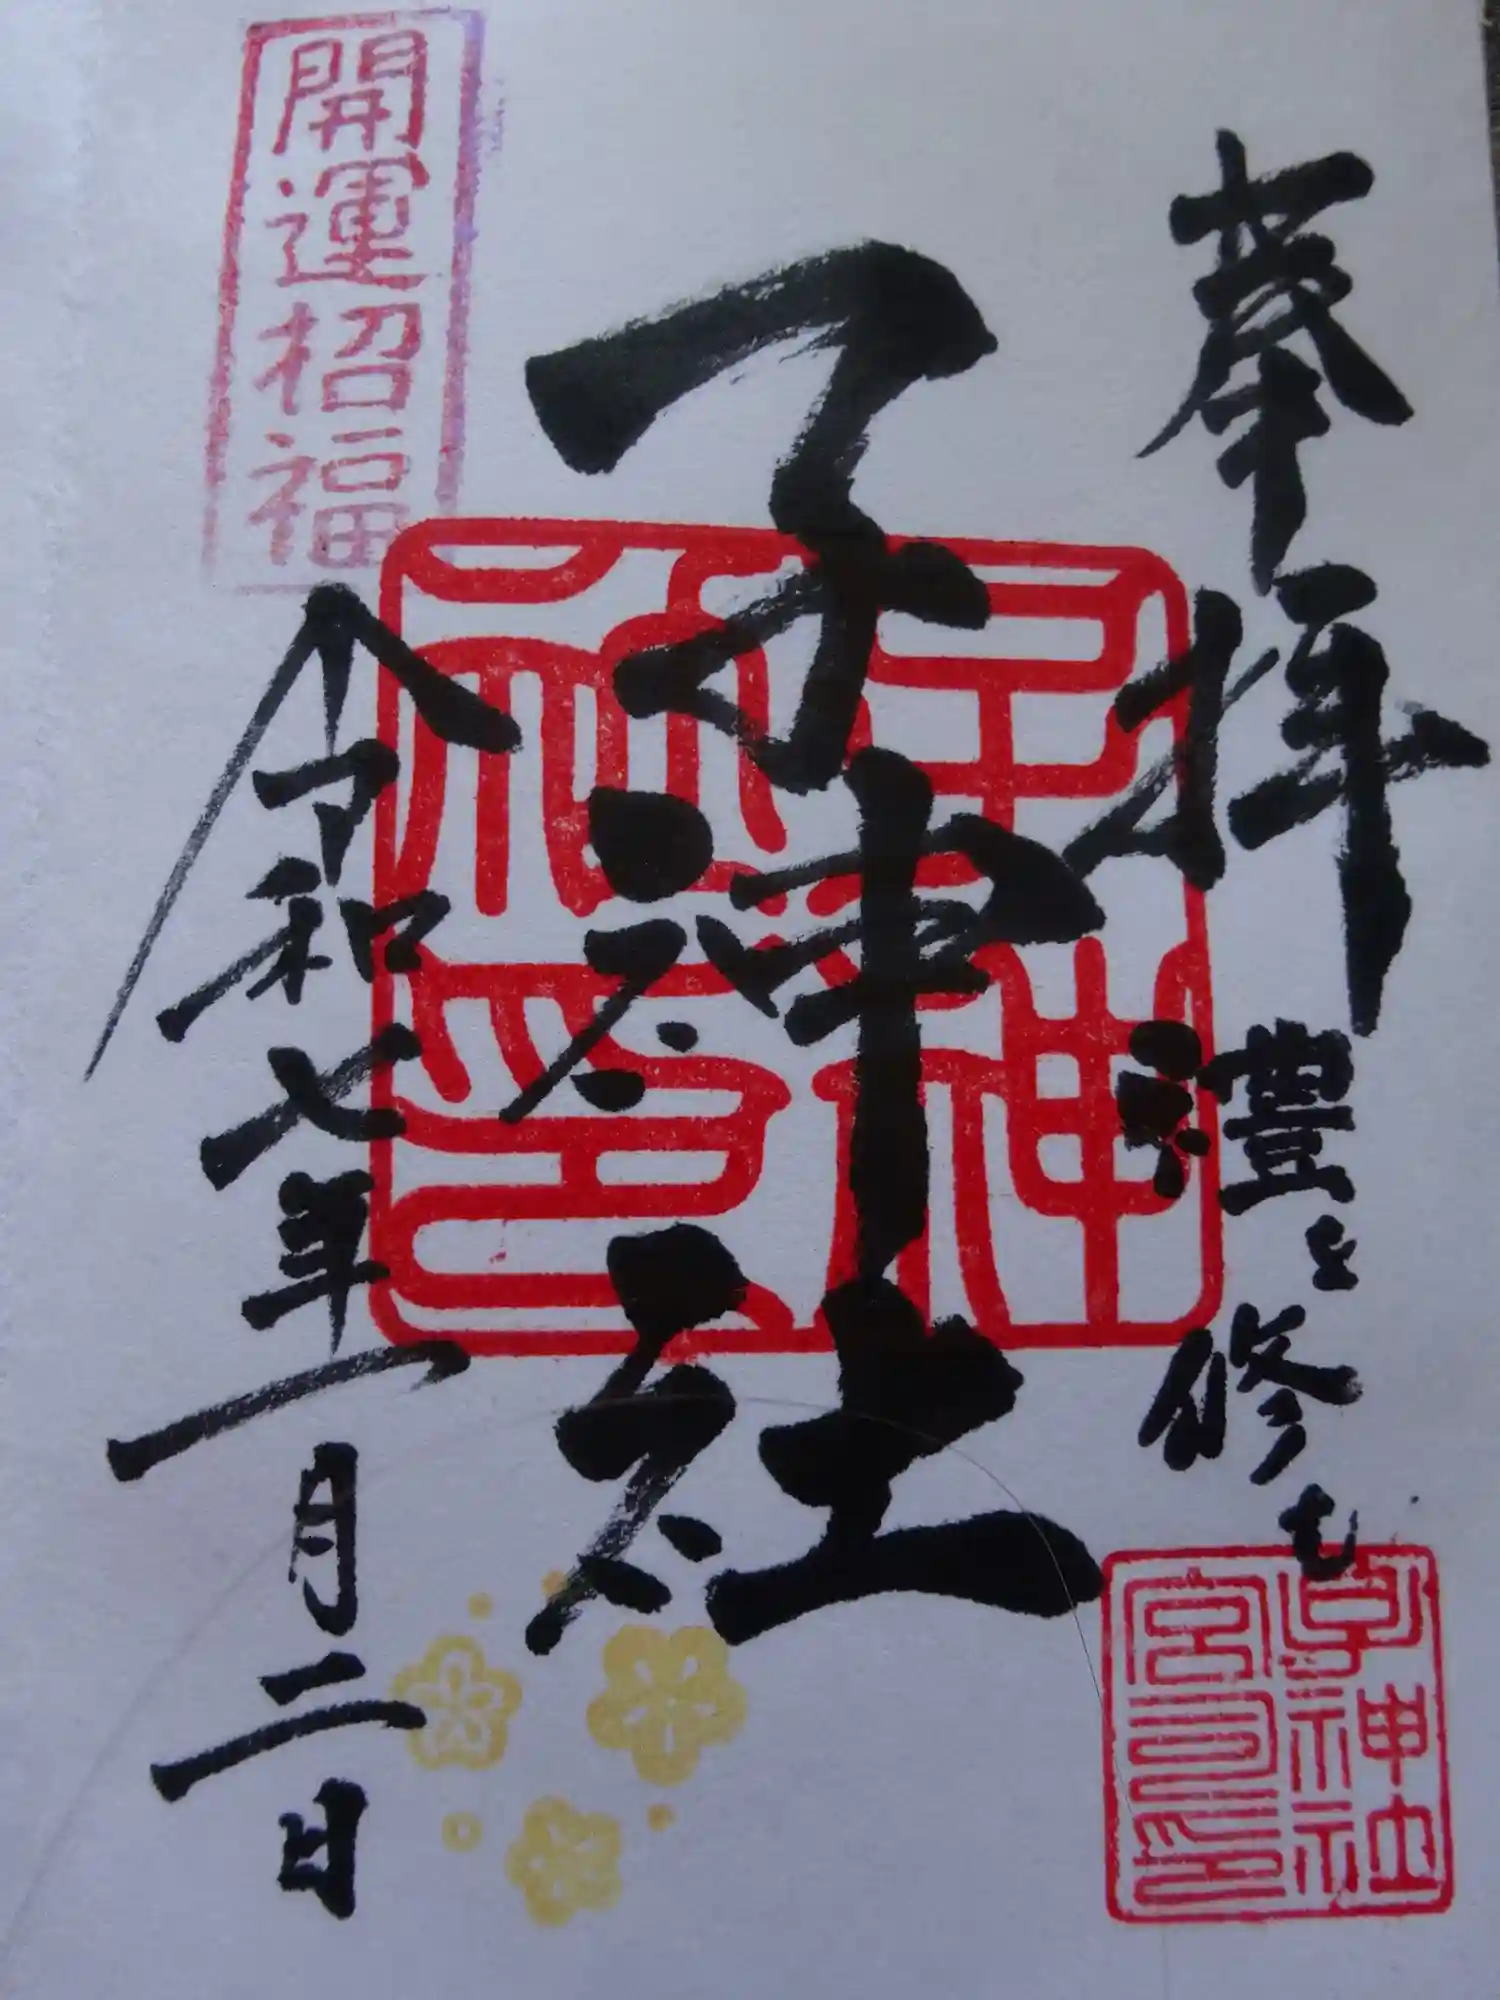 奉拝 禮を修む
子神社
令和七年一月二日
開運招福
子神社印
子神社宮司印